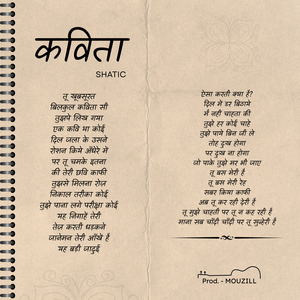 कविता
SHATIC
तू खूबसूरत
बिलकुल कविता सी
तुझपे लिख गया
एक कवि था कोई
दिल जला के उसने
रोशन किये अँधेरे में
पर तू चमके इतना
की तेरी छवि काफी
तुझसे मिलना रोज़
निकाल तरीका कोई
तुझे पाना लगे परीक्षा कोई
यह निगाहें तेरी
तेज़ करती धड़कने
जानेमन तेरी आँखें हैं
यह बड़ी जादुई
ऐसा करती क्या है?
दिल में डर बिठाये
में नही चाहता की
तुझे हर कोई चाहे
तुझे पाये बिन जी ले
तोह दुख होगा
पर दुख ना होगा
जो पाके तुझे मर भी जाए
तू बस मेरी है
तू बस मेरी रेह
सबर किया काफी
अब तू कर रही देरी है
तू मुझे चाहती पर तू न कह रही है
माना सब चाँदी चाँदी पर तू सुन्हेरी है
Prod. - MOUZILL